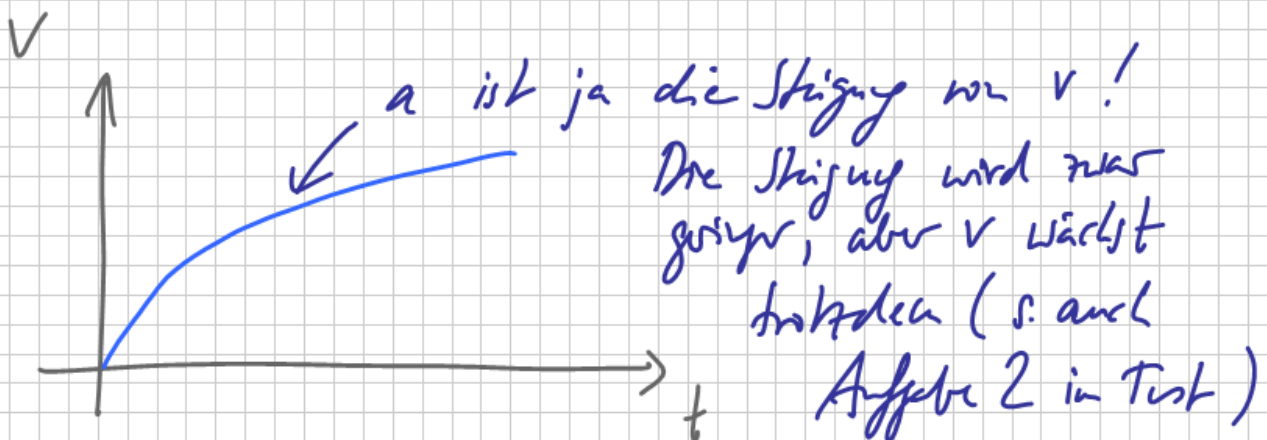 V
a ist ja die Steigung von v!
Die Steigung wird zwar
geringer, aber v wächst
trotzdem (s. auch
Aufgabe 2 im Test)
t